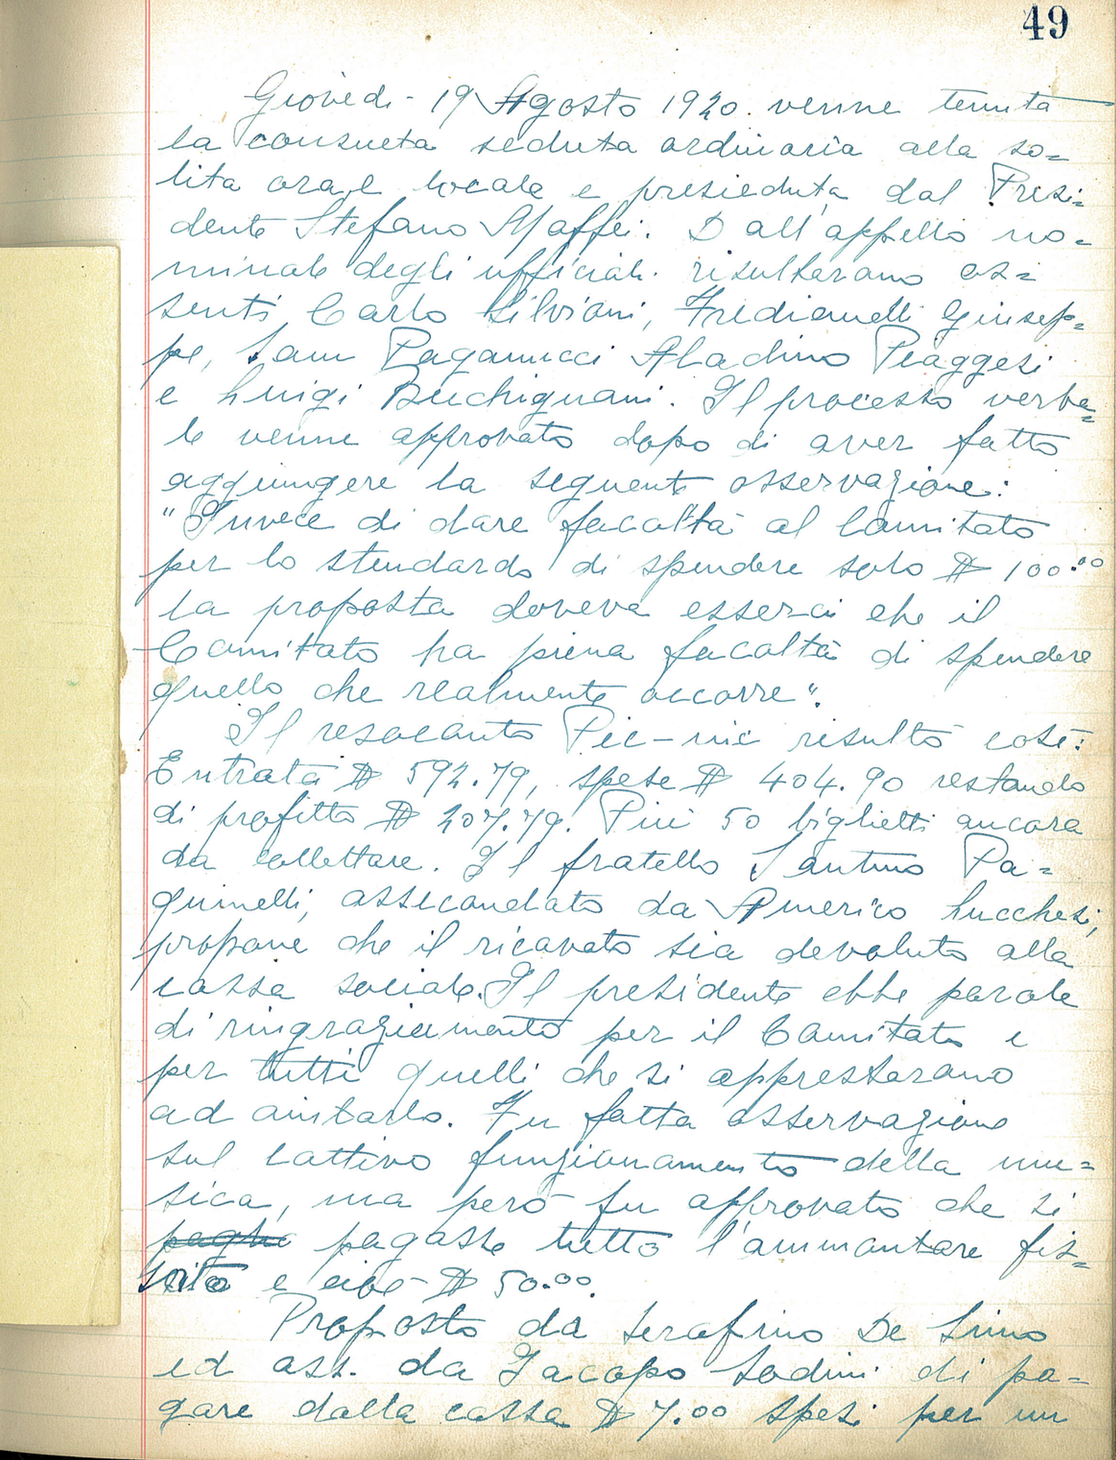 49
Giovedi - 19 Agosto 1920. venne tenuta
la consueta seduta ordinaria alla so=
lita ora e locale e presieduta dal Presi=
dente Stefano Maffei. Dall'appello no=
minale degli ufficiali risultarano as=
senti Carlo Silviani, Fredianelli Giusep=
pe, Sam Paganucci Aladino Piaggesi
e Luigi Buchignani. Il processo verba=
le venne approvato dopo di aver fatto
aggiungere la seguente osservazione:
"Invece di dare facoltà al Comitato
per lo stendardo di spendere solo $ 100.00
la proposta doveva esserci che il
Comitato ha piena facoltà di spendere
quello che realmente occorre".
Il resoconto Pic-nic risultò così:
Entrata $ 592.79, spese $ 404.90 restando
di profitto $ 207.79. Più 50 biglietti ancora
da collettare. Il fratello Santino Pa=
quinelli, assecondato da Americo Lucchesi,
propone che il ricavato sia devoluto alla
cassa sociale. Il presidente ebbe parole
di ringraziamento per il Comitato e
per tutti quelli che si apprestarano
ad aiutarlo. Fu fatta osservazione
sul cattivo funzionamento della mu=
sica, ma però fu approvato che si
paghi pagasse tutto l'ammontare fis=
sato e cioè $ 50.00.
Proposto da Serafino De Simo
ed ass. da Jacopo Sodini di pa=
gare dalla cassa $ 7.00 spesi per un